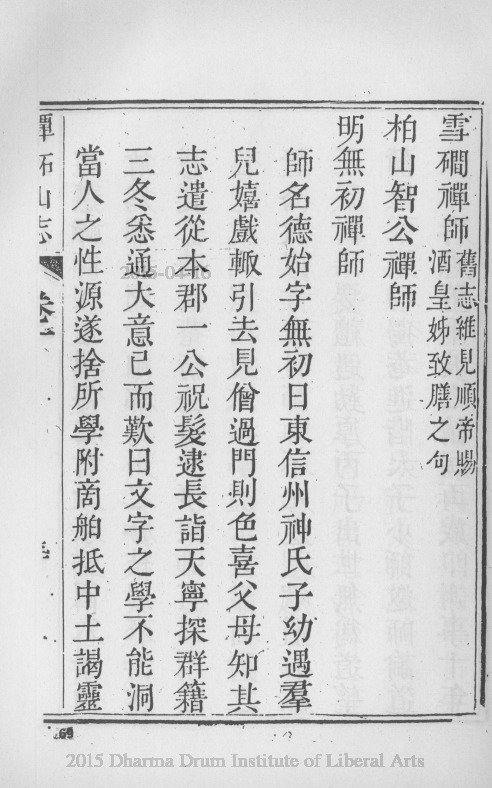 雪磵禪師舊志維見順帝賜
酒皇姊致膳之句
柏山智公禪師
明無初禪師
師名德始字無初日東信州神氏子幼遇羣
兒嬉戲輙引去見僧過門則色喜父母知其
志遣從本郡一公祝髮逮長詣天寧探群籍
三冬悉通大意已而歎曰文字之學不能洞
當人之性源遂捨所學附商舶抵中土謁靈
潭柘山志
卷
69
2015-04-16
2015 Dharma Drum Institute of Liberal Arts